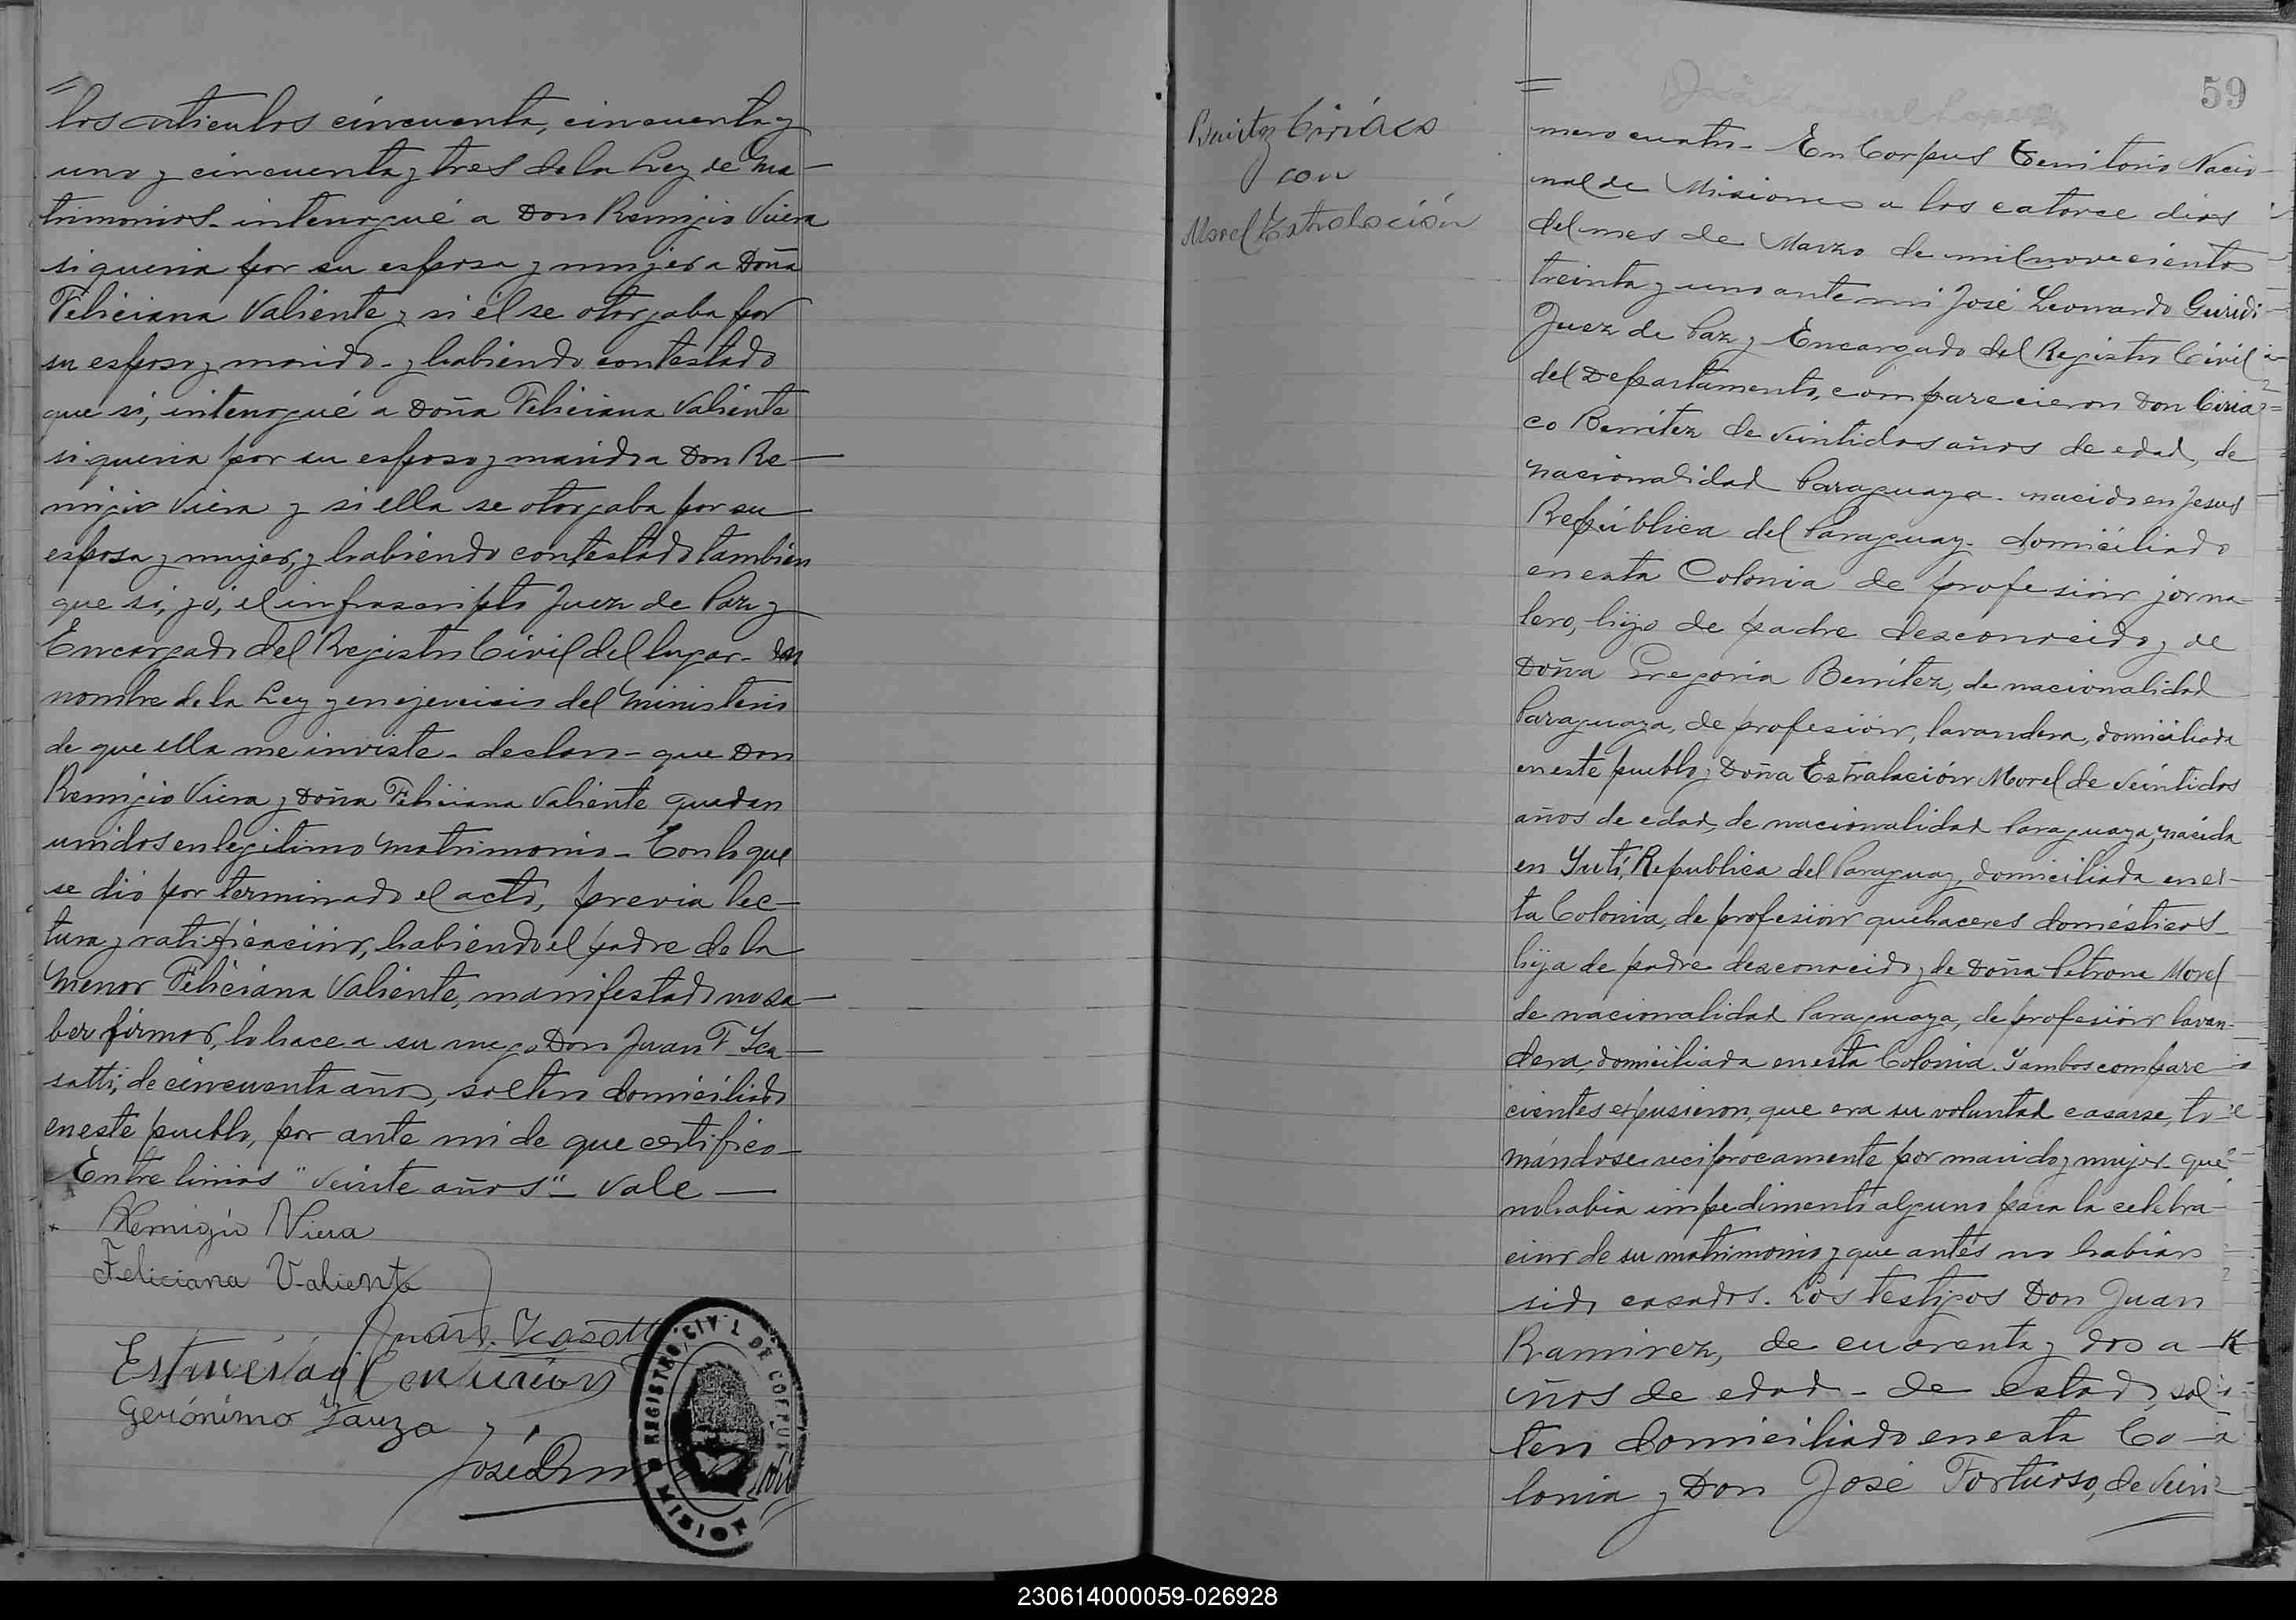 los articulos cincuenta, cincuenta y
uno y cincuenta y tres de la Ley de Ma-
trimonios - interrogué a Don Remigio Viera
si queria por su esposa y mujer a Doña
Feliciana Valiente y si él se otorgaba por
su esposo y marido - y habiendo contestado
que si, interrogué a Doña Feliciana Valiente
si queria por su esposo y marido a Don Re-
migio Viera y si ella se otorgaba por su
esposa y mujer, y habiendo contestado tambien
que si, yó, el infrascripto Juez de Paz y
Encargado del Registro Civil del lugar - en
nombre de la Ley y en ejercicio del Ministerio
de que ella me inviste - declaro - que Don
Remigio Viera y Doña Feliciana Valiente quedan
unidos en legitimo Matrimonio - Con lo que
se dió por terminado el acto, previa lec-
tura y ratificación, habiendo el padre de la
Menor Feliciana Valiente, manifestado no sa-
ber firmar, lo hace a su ruego Don Juan F. Ica-
satti, de cincuenta años, soltero domiciliado
en este pueblo, por ante mi de que certifico -
Entre linias "veinte años" - Vale -
Remigio Viera
Feliciana Valiente
Juan F. Icasatti
Centurión
Gerónimo
José
REGISTRO CIVIL DE CORPUS
MISIONES
59
Benitez Ciriaco
con
Morel Estralación
mero cuatro - En Corpus Territorio Nacio-
nal de Misiones a los catorce dias
del mes de Marzo de mil novecientos
treinta y uno ante mi José Leonardo Guridi
Juez de Paz y Encargado del Registro Civil
del Departamento, comparecieron Don Ciria-
co Benítez de veintidos años de edad, de
nacionalidad Paraguaya - nacido en Jesus
República del Paraguay - domiciliado
en esta Colonia de profesión jorna-
lero, hijo de padre desconocido y de
Doña Gregoria Benítez, de nacionalidad
Paraguaya, de profesión, lavandera, domiciliada
en este pueblo y Doña Estralación Morel de veintidos
años de edad, de nacionalidad Paraguaya, nacida
en Yuti, Republica del Paraguay, domiciliada en es-
ta Colonia, de profesión quehaceres domésticos -
hija de padre desconocido y de Doña Petrona Morel
de nacionalidad Paraguaya, de profesión lavan-
dera, domiciliada en esta Colonia. Y ambos compare
cientes expusieron, que era su voluntad casarse, to-
mándose reciprocamente por marido y mujer - que
no habia impedimento alguno para la celebra-
cion de su matrimonio y que antes no habian
sido casados. Los testigos Don Juan
Ramirez, de cuarenta y dos a-
ños de edad - de estado sol-
tero domiciliado en esta Co-
lonia y Don José Fortuoso, de vein-
230614000059-026928